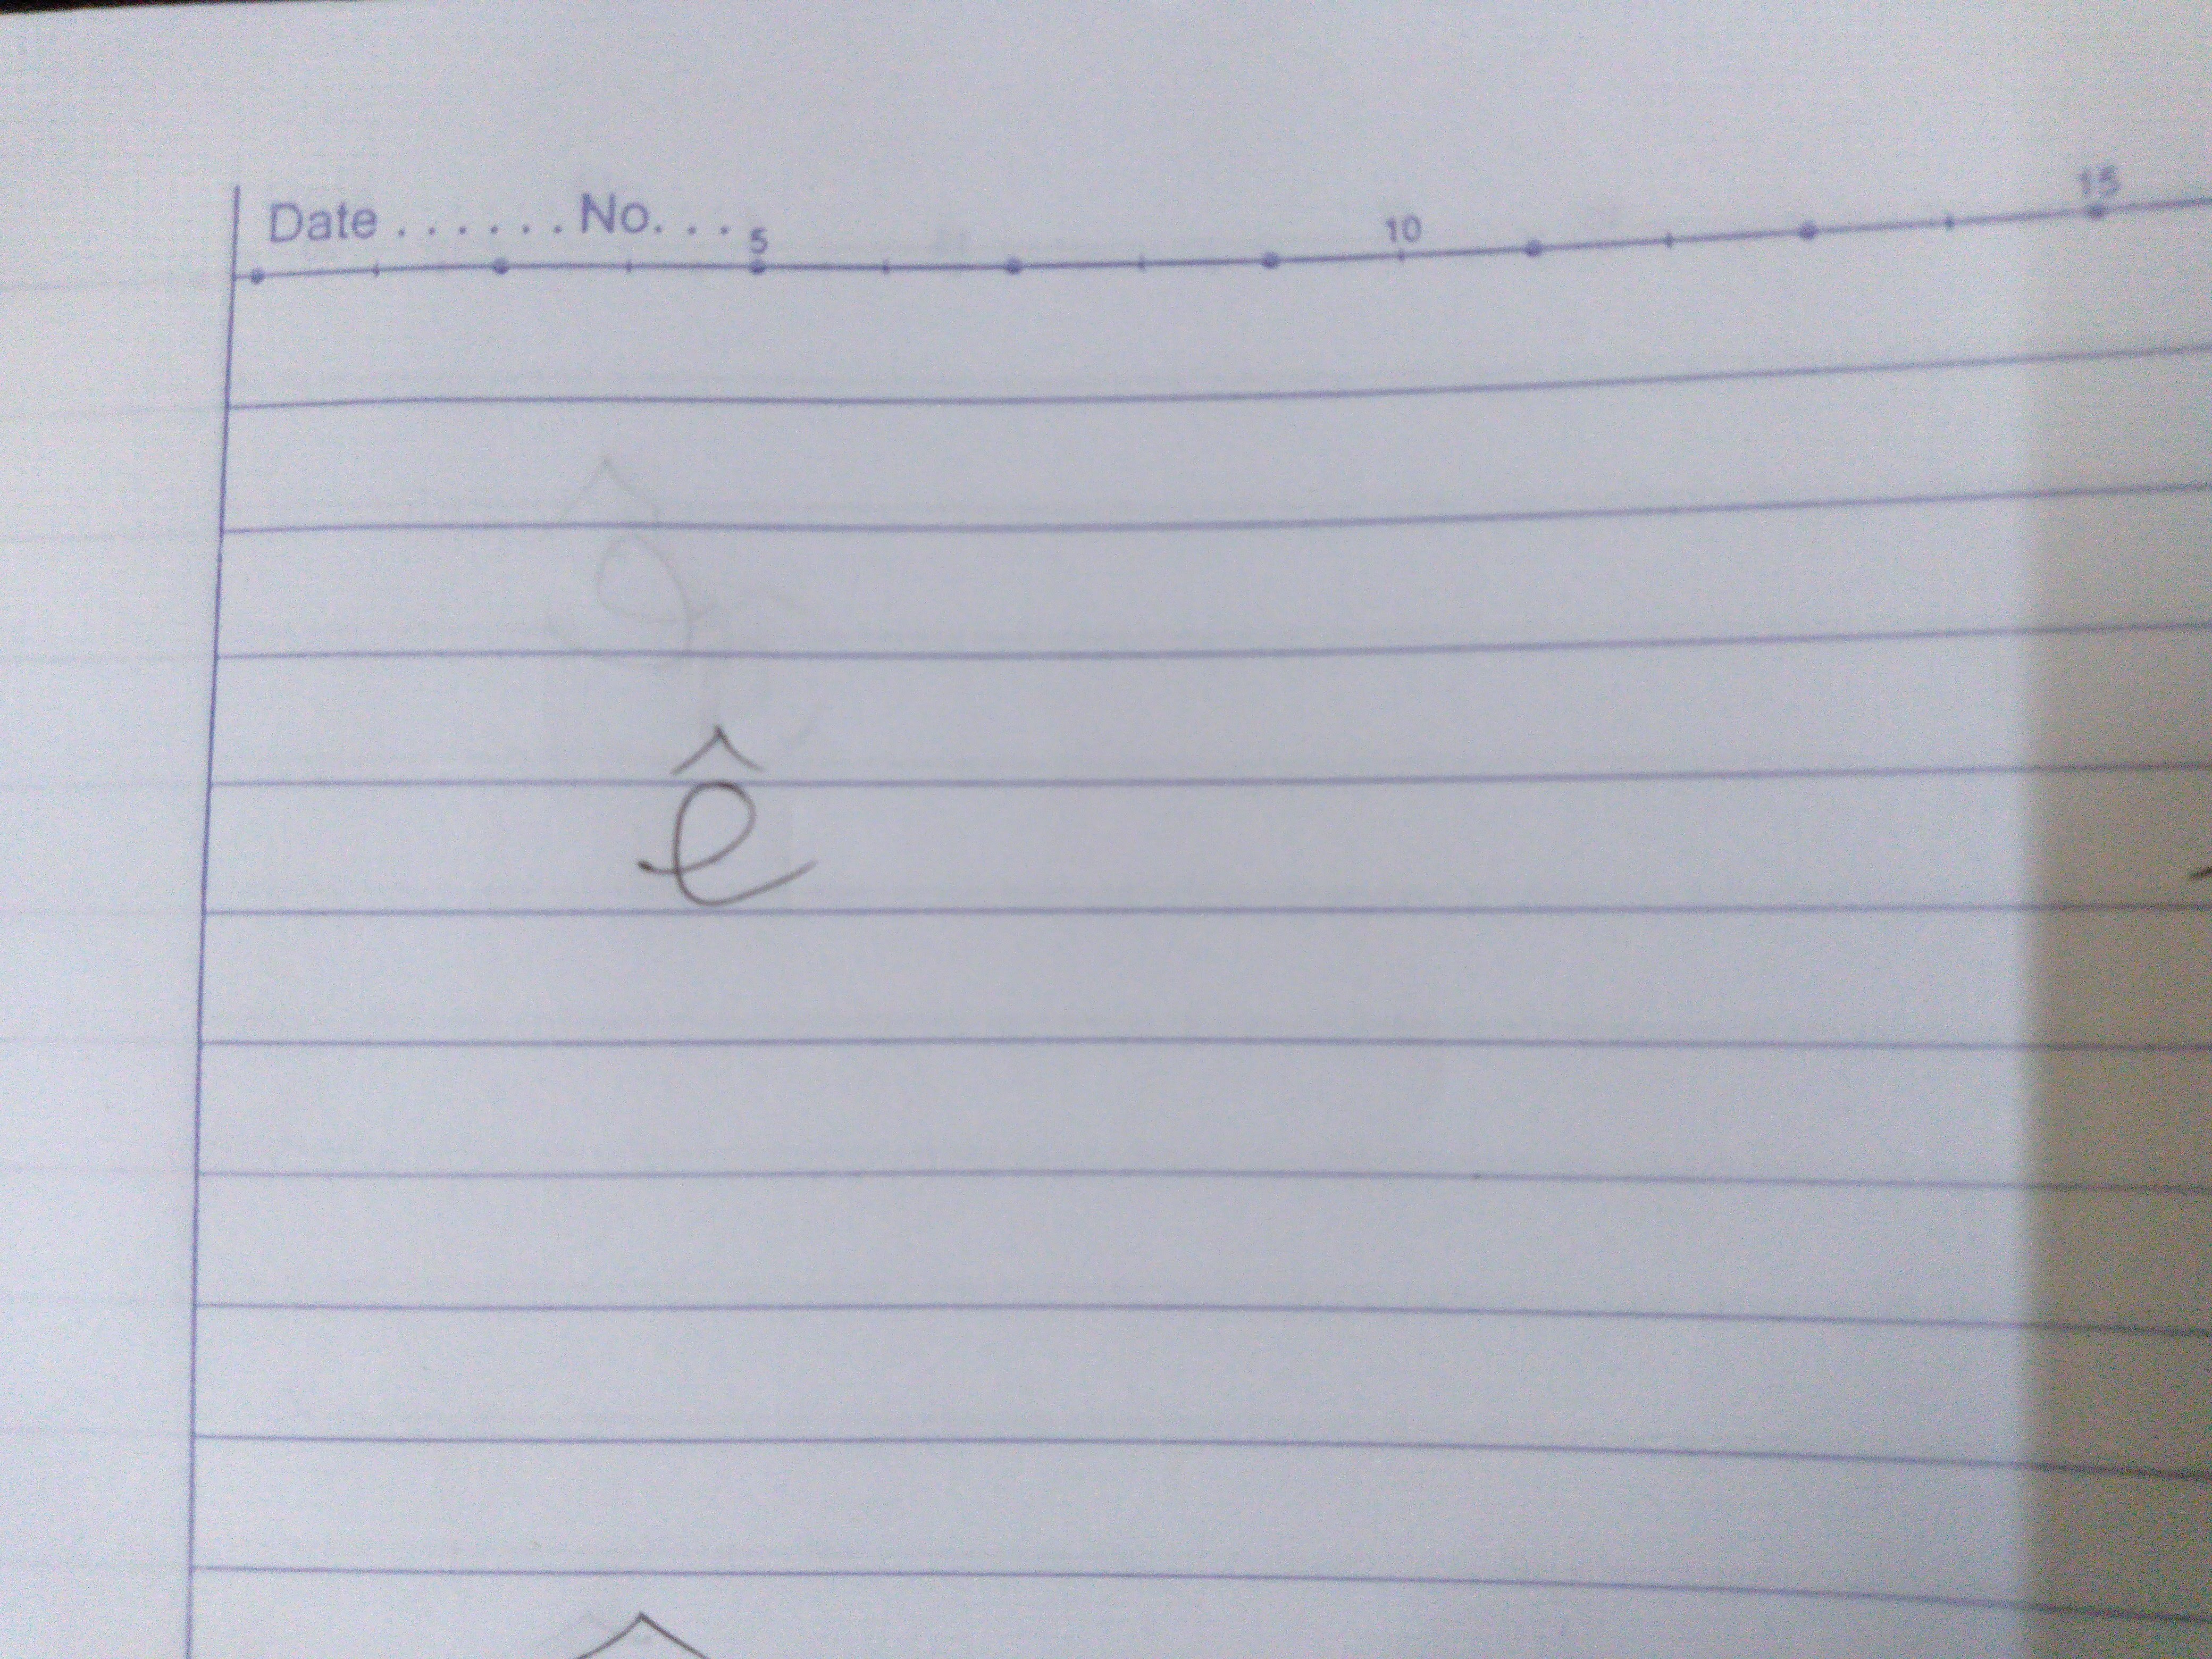 Date ...... No....
5 10 15
ê